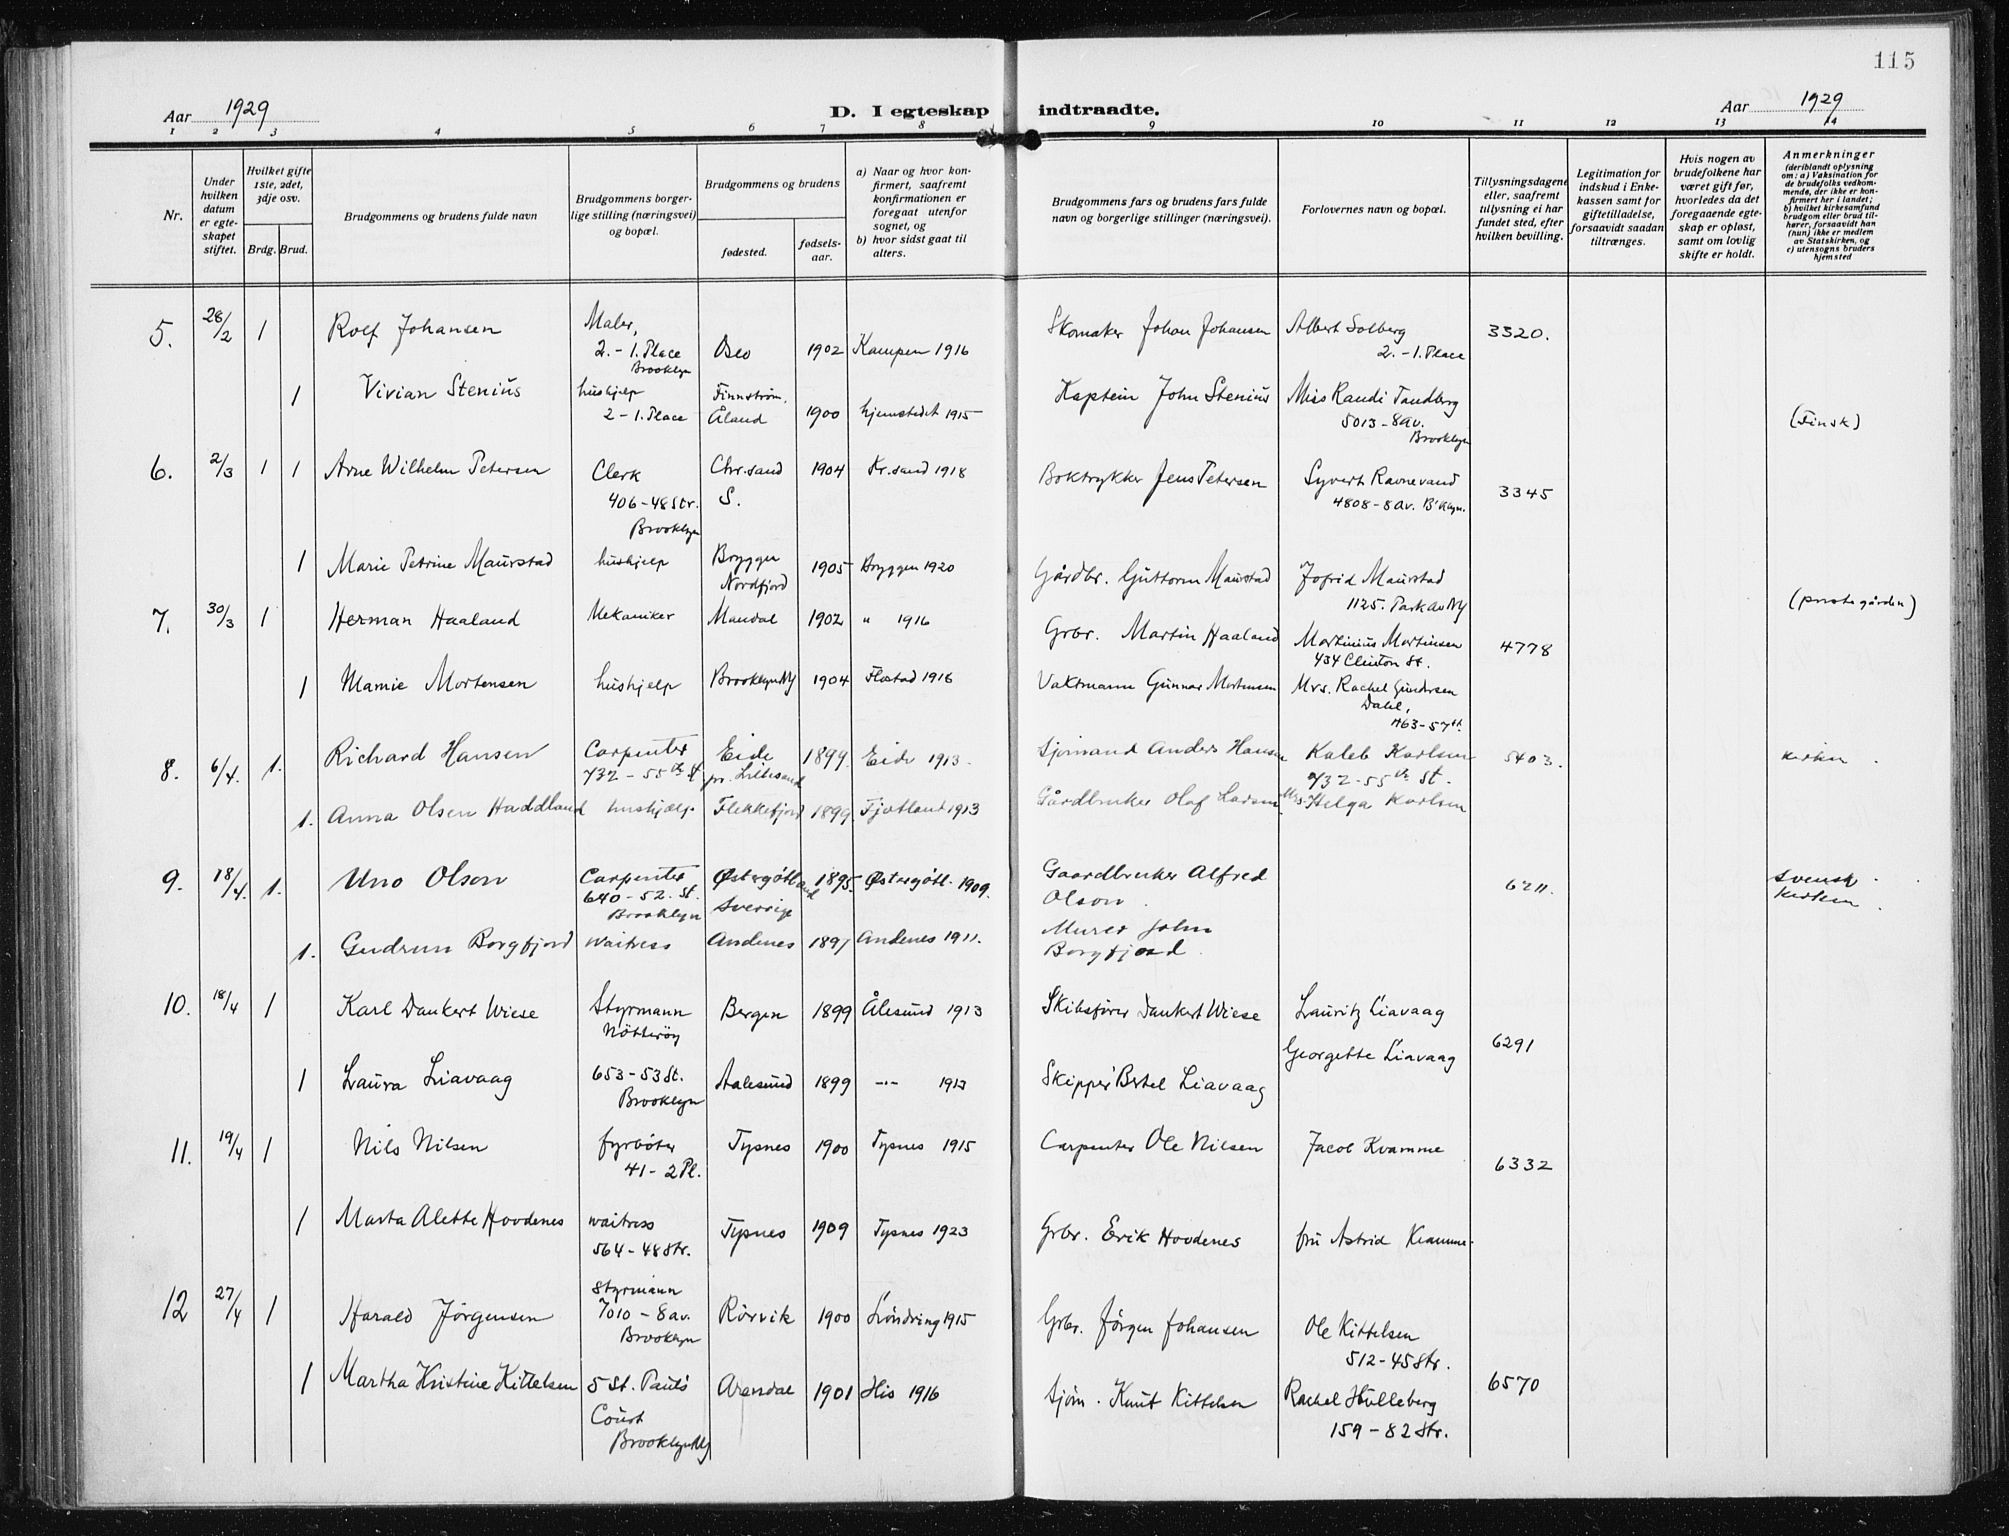 115
Aar 1929
D. I egteskap indtraadte.
Aar 1929
1 2 3 4 5 6 7 8 9 10 11 12 13 14
Nr.
Under hvilken datum er egteskapet stiftet.
Hvilket gifte 1ste, 2det, 3dje osv.
Brdg. Brud.
Brudgommens og brudens fulde navn
Brudgommens borgerlige stilling (næringsvei) og bopæl.
Brudgommens og brudens
fødested.
fødselsaar.
a) Naar og hvor konfirmert, saafremt konfirmationen er foregaat utenfor sognet, og
b) hvor sidst gaat til alters.
Brudgommens fars og brudens fars fulde navn og borgerlige stillinger (næringsvei).
Forlovernes navn og bopæl.
Tillysningsdagene eller, saafremt tillysning ei har fundet sted, efter hvilken bevilling.
Legitimation for indskud i Enkekassen samt for giftetilladelse, forsaavidt saadan tiltrænges.
Hvis nogen av brudefolkene har været gift før, hvorledes da det foregaaende egteskap er opløst, samt om lovlig skifte er holdt.
Anmerkninger
(deriblandt oplysning om: a) Vaksination for de brudefolks vedkommende, der ikke er konfirmert her i landet;
b) hvilket kirkesamfund brudgom eller brud tilhører, forsaavidt han (hun) ikke er medlem av Statskirken, og
c) utensogns bruders hjemsted
5. 28/2 1 Rolf Johansen Maler, 2.-1. Place Brooklyn Oslo 1902 Kampen 1916 Skomaker Johan Johansen Albert Solberg 2.-1. Place 3320.
1 Vivian Stenius hushjelp 2-1. Place Finnström, Åland 1900 hjemstedet 1915 Kaptein John Stenius Miss Randi Tandberg 5013-8 av. Brooklyn (Finsk)
6. 2/3 1 1 Arne Wilhelm Petersen Clerk 406-48 Str. Brooklyn Chr.sand S. 1904 Kr.sand 1918 Boktrykker Jens Petersen Syvert Ravnevand 4808-8 av. B'klyn. 3345
1 Marie Petrine Maurstad hushjelp Bryggen Nordfjord 1905 Bryggen 1920 Gårdbr. Guttorm Maurstad Jofrid Maurstad 1125. Park Av NY
7. 30/3 1 Herman Haaland Mekaniker Mandal 1902 " 1916 Grbr. Martin Haaland Martinius Mortensen 434 Clinton St. 4778 (prestegården)
1 Mamie Mortensen hushjelp Brooklyn NY 1904 Flostad 1916 Vaktmann Gunnar Mortensen Mrs. Rachel Gundersen Dahl, 763-57 st.
8. 6/4. 1. Richard Hansen Carpenter 732-55th St Eide pr. Lillesand 1899. Eide 1913. Sjømand Anders Hansen Kaleb Karlsen 732-55th St. 5403. Kirken.
1. Anna Olsen Haddland hushjælp Flekkefjord 1899. Fjotland 1913 Gårdbruker Olaf Larsen Mrs. Helga Karlsen
9. 18/4. 1. Uno Olson Carpenter 640-52. St. Brooklyn Østergötland Sverrige 1895. Østergötl. 1909. Gaardbruker Alfred Olson. 6211. Svensk Kirken.
1. Gudrun Borgfjord Waitress Andenes 1897 Andenes 1911. Murer John Borgfjord.
10. 18/4 1 Karl Dankert Wiese Styrmann Nötteröy Bergen 1899 Ålesund 1913 Skibsfører Dankert Wiese Lauritz Liavaag 6291
1 Laura Liavaag 653-53 St. Brooklyn Aalesund 1899 -"- 1913 Skipper Bertel Liavaag Georgette Liavaag
11. 19/4 1 Nils Nilsen fyrböter 41-2 Pl. Tysnes 1900 Tysnes 1915 Carpenter Ole Nilsen Jacob Kvamme 6332
1 Marta Alette Hovdenes waitress 564-48 Str. Tysnes 1909 Tysnes 1923 Grbr. Erik Hovdenes fru Astrid Kvamme
12 27/4 1 Harald Jørgensen Styrmann 7010-8 av. Brooklyn Rörvik 1900 1915 Grbr. Jørgen Johansen Ole Kittelsen 512-45 Str. 6570
1 Martha Kristine Kittelsen 5 St. Paul's Court Brooklyn NY Arendal 1901 His 1916 Sjøm. Knut Kittelsen Rachel Hulleberg 159-82 Str.